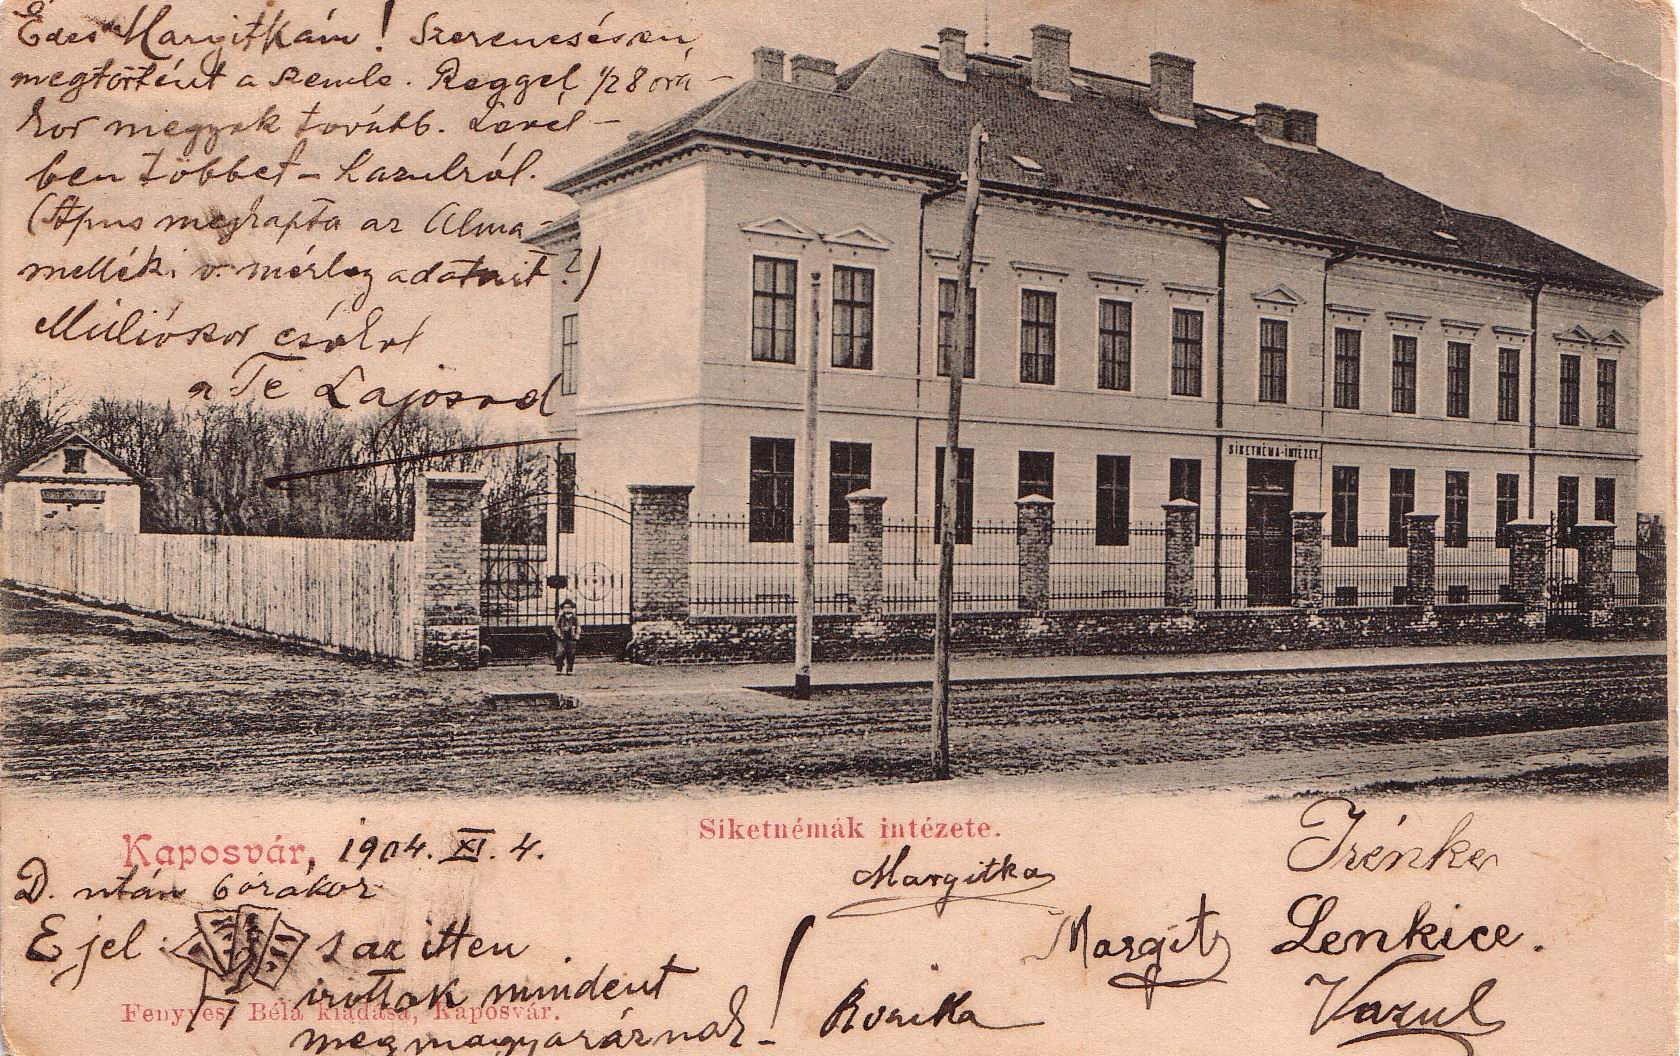 Édes Margitkám! Szerencsésen
megtörtént a szemle. Reggel 1/28 órá-
kor megyek tovább. Level-
ben többet - Vazulról.
(Apus megkapta az Alma-
melléki v. mérleg adatait?)
Milliószor csókol
a Te Lajosod
SIKETNÉMA-INTÉZET.
Kaposvár, 1904. XI. 4.
Siketnémák intézete.
D. után 6 órakor
Ejel: s az itten
irottak mindent
megmagyaráznak!
Fenyvesi Béla kiadása, Kaposvár.
Margitka
Irénke
Margit
Lenkice.
Rozika
Vazul